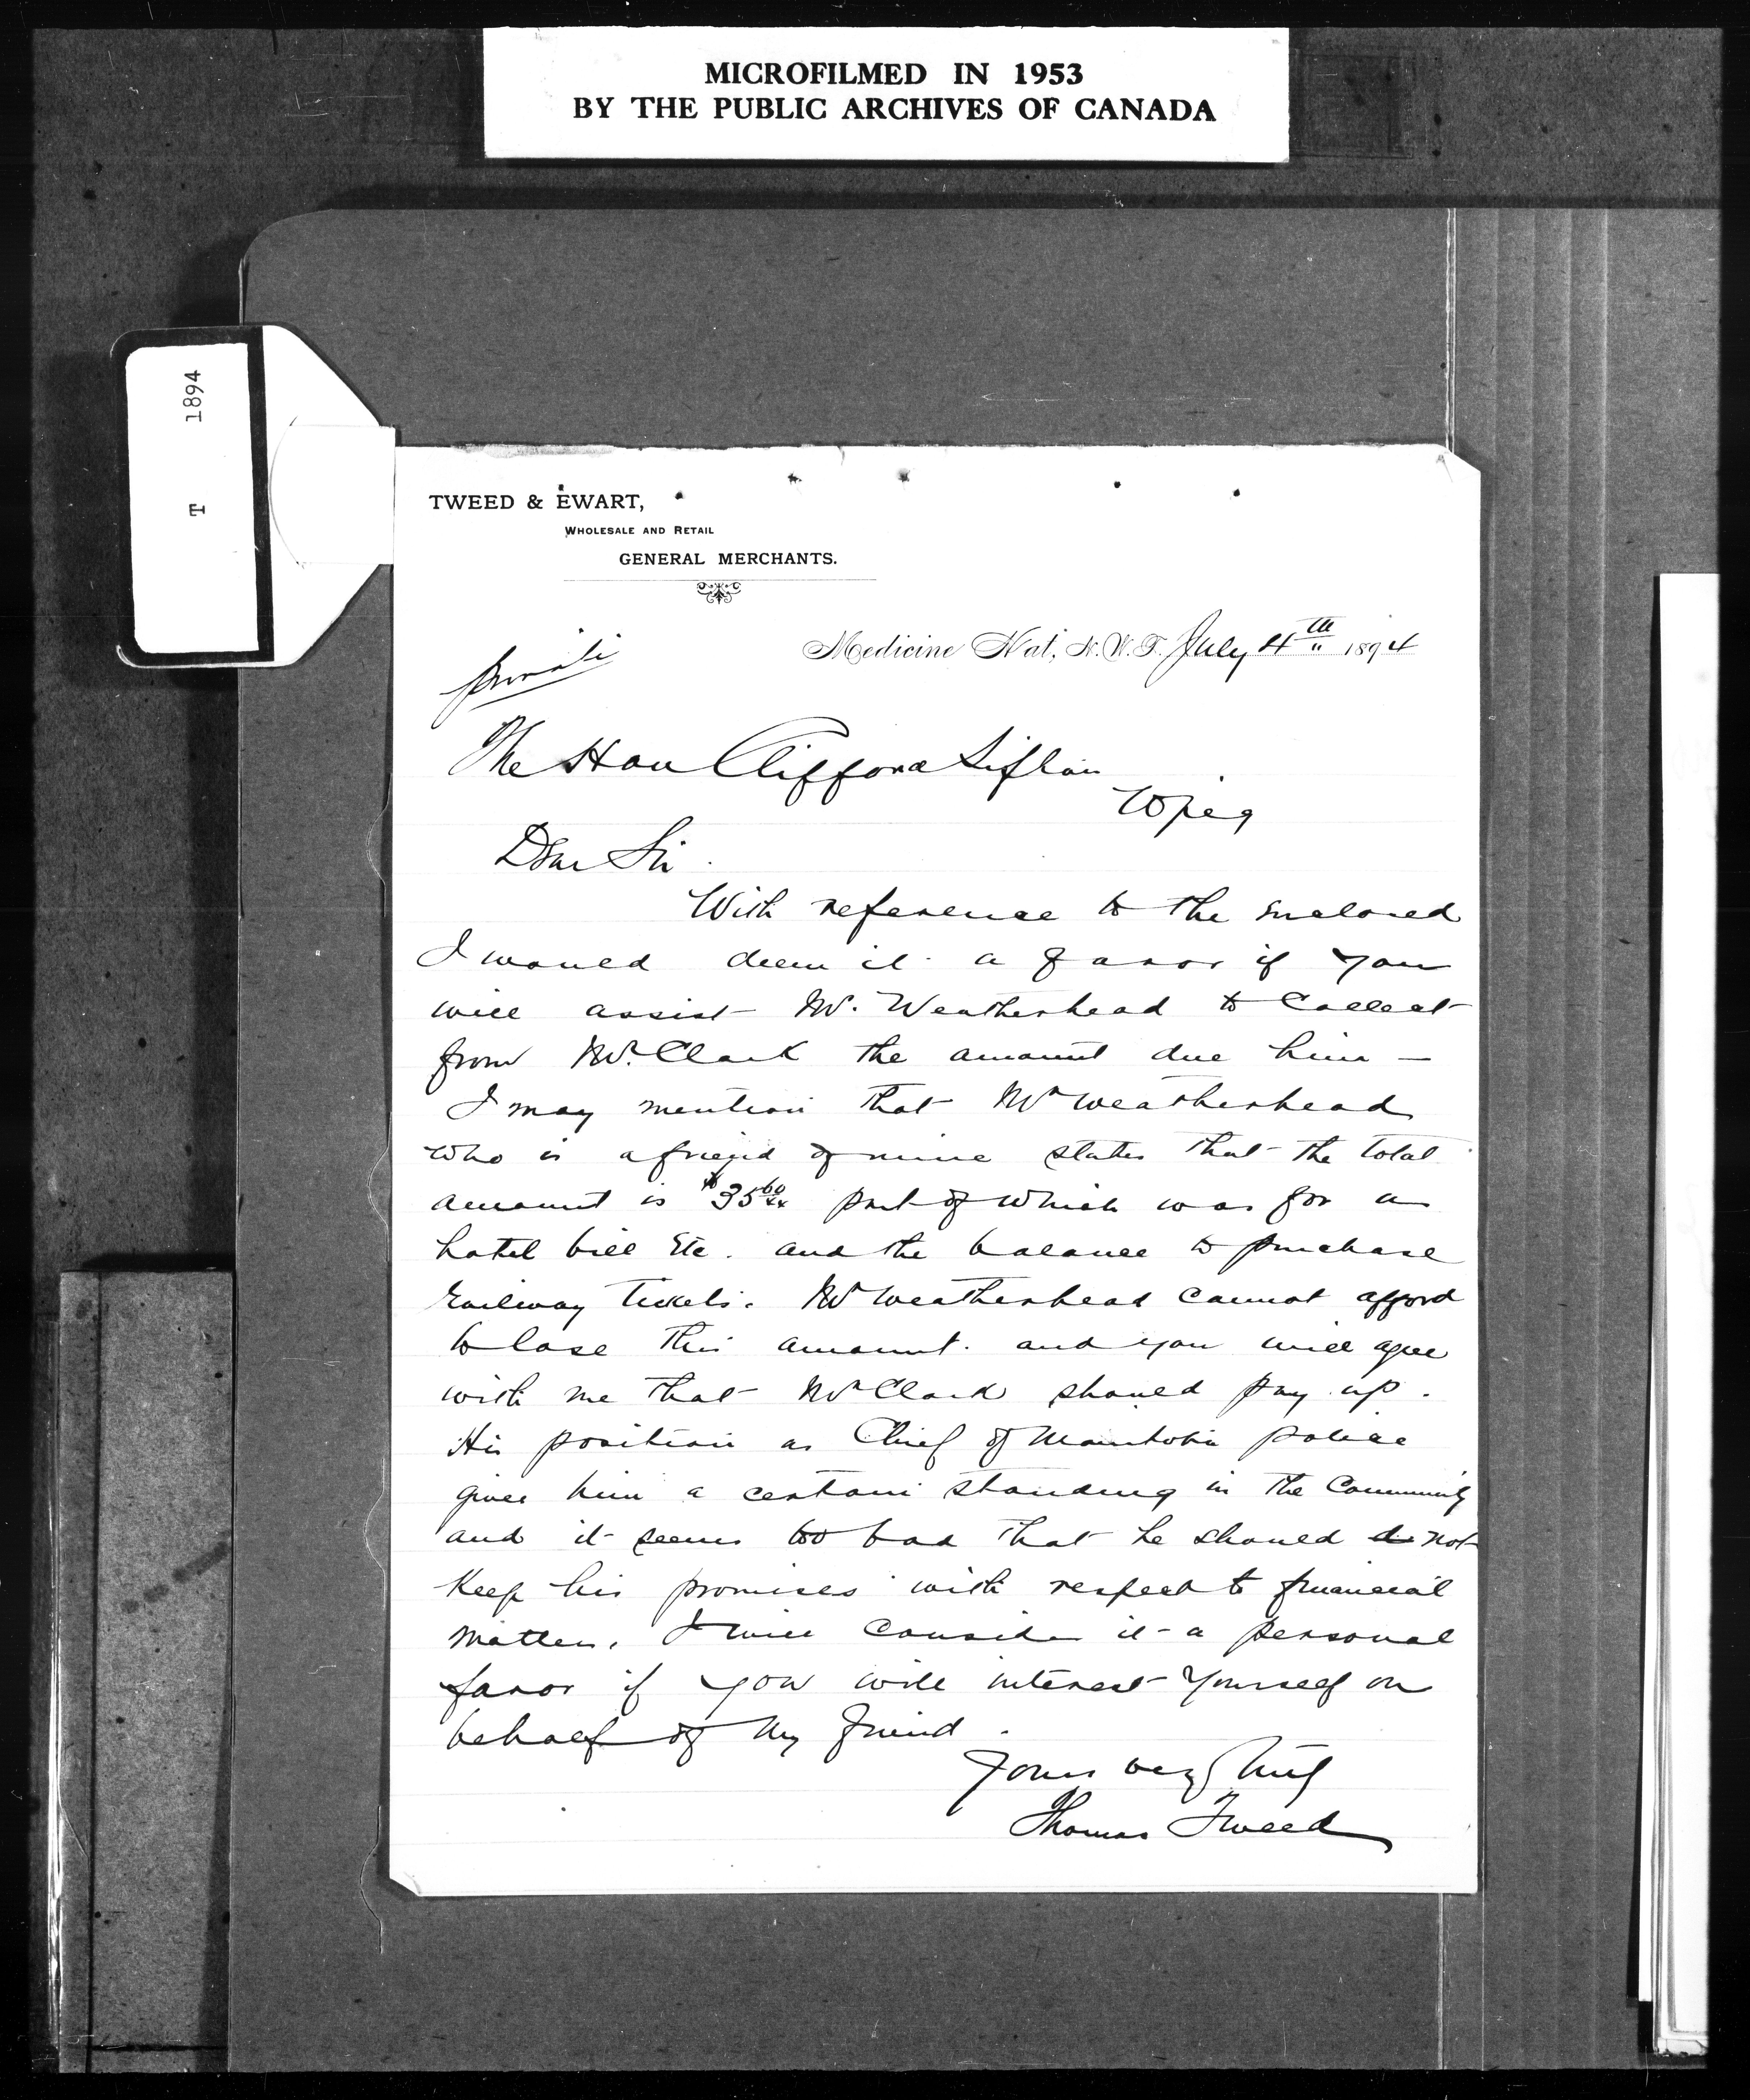 MICROFILMED IN 1953
BY THE PUBLIC ARCHIVES OF CANADA
T 1894
TWEED & EWART,
WHOLESALE AND RETAIL
GENERAL MERCHANTS.
Medicine Hat, N.W.T. July 4th 1894
Private
The Hon Clifford Sifton
Wpeg
Dear Sir.
With reference to the enclosed
I would deem it a favor if you
will assist Mr. Weatherhead to Collect
from Mr. Clark the amount due him —
I may mention that Mr Weatherhead
who is a friend of mine states that the total
amount is $35 60/xx part of which was for a
hotel bill Etc. and the balance to purchase
Railway Tickets. Mr Weatherhead cannot afford
to lose this amount. and you will agree
with me that Mr Clark should pay up.
His position as Chief of Manitoba police
gives him a certain standing in the Community
and it seems too bad that he should not
Keep his promises with respect to financial
matters. I will consider it a personal
favor if you will interest yourself on
behalf of my friend.
Yours very truly
Thomas Tweed